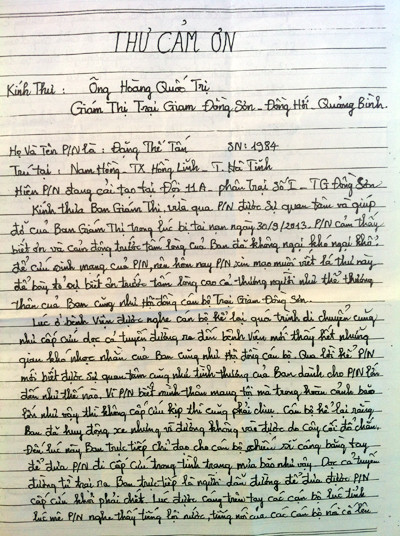 THƯ CẢM ƠN
Kính Thư : Ông Hoàng Quốc Trị
Giám Thị Trại Giam Đồng Sơn - Đồng Hới - Quảng Bình.
Họ Và Tên P/N là : Đặng Thế Tấn SN: 1984
Trú tại : Nam Hồng - TX Hồng Lĩnh - T. Hà Tĩnh
Hiện P/N đang cải tạo tại Đội 11A - phân Trại Số I - TG Đồng Sơn
Kính thưa Ban Giám Thị, vừa qua P/N được sự quan tâm và giúp
đỡ của Ban Giám Thị trong lúc bị tai nạn ngày 30/9/2013. P/N cảm thấy
biết ơn và cảm động trước tấm lòng của Ban đã không ngại kho ngại khổ
để cứu sinh mạng của P/N, nên hôm nay P/N xin mạo muội viết lá thư này
để bày tỏ sự biết ơn trước tấm lòng cao cả thương người như thể thương
thân của Ban cùng như Hội đồng cán bộ Trại Giam Đồng Sơn.
Lúc ở bệnh viện được nghe cán bộ kể lại quá trình di chuyển cũng
như cấp cứu dọc cả tuyến đường ra đến bệnh viện mới thấy hết những
gian khó nhọc nhằn của Ban cùng như Hội đồng cán bộ. Qua lời kể P/N
mới biết được sự quan tâm cùng như tình thương của Ban dành cho P/N lớn
đến như thế nào. Vì P/N biết mình thân mang tội mà trong hoàn cảnh bão
lớn như vậy thì không cấp cứu kịp thì cũng phải chịu. Cán bộ kể lại rằng
Ban đã huy động xe nhưng vì đường không vào được do cây cối đổ chắn.
Đến lúc này Ban trực tiếp chỉ đạo cho cán bộ chiến sĩ cáng bằng tay
để đưa P/N đi cấp cứu trong tình trạng mưa bão như vậy. Dọc cả tuyến
đường từ trại ra Ban trực tiếp là người dẫn đường để đưa được P/N
cấp cứu khỏi phải chết. Lúc được cáng trên tay các cán bộ lúc tỉnh
lúc mê P/N nghe thấy tiếng lội nước, tiếng nói của các cán bộ nói cố lên